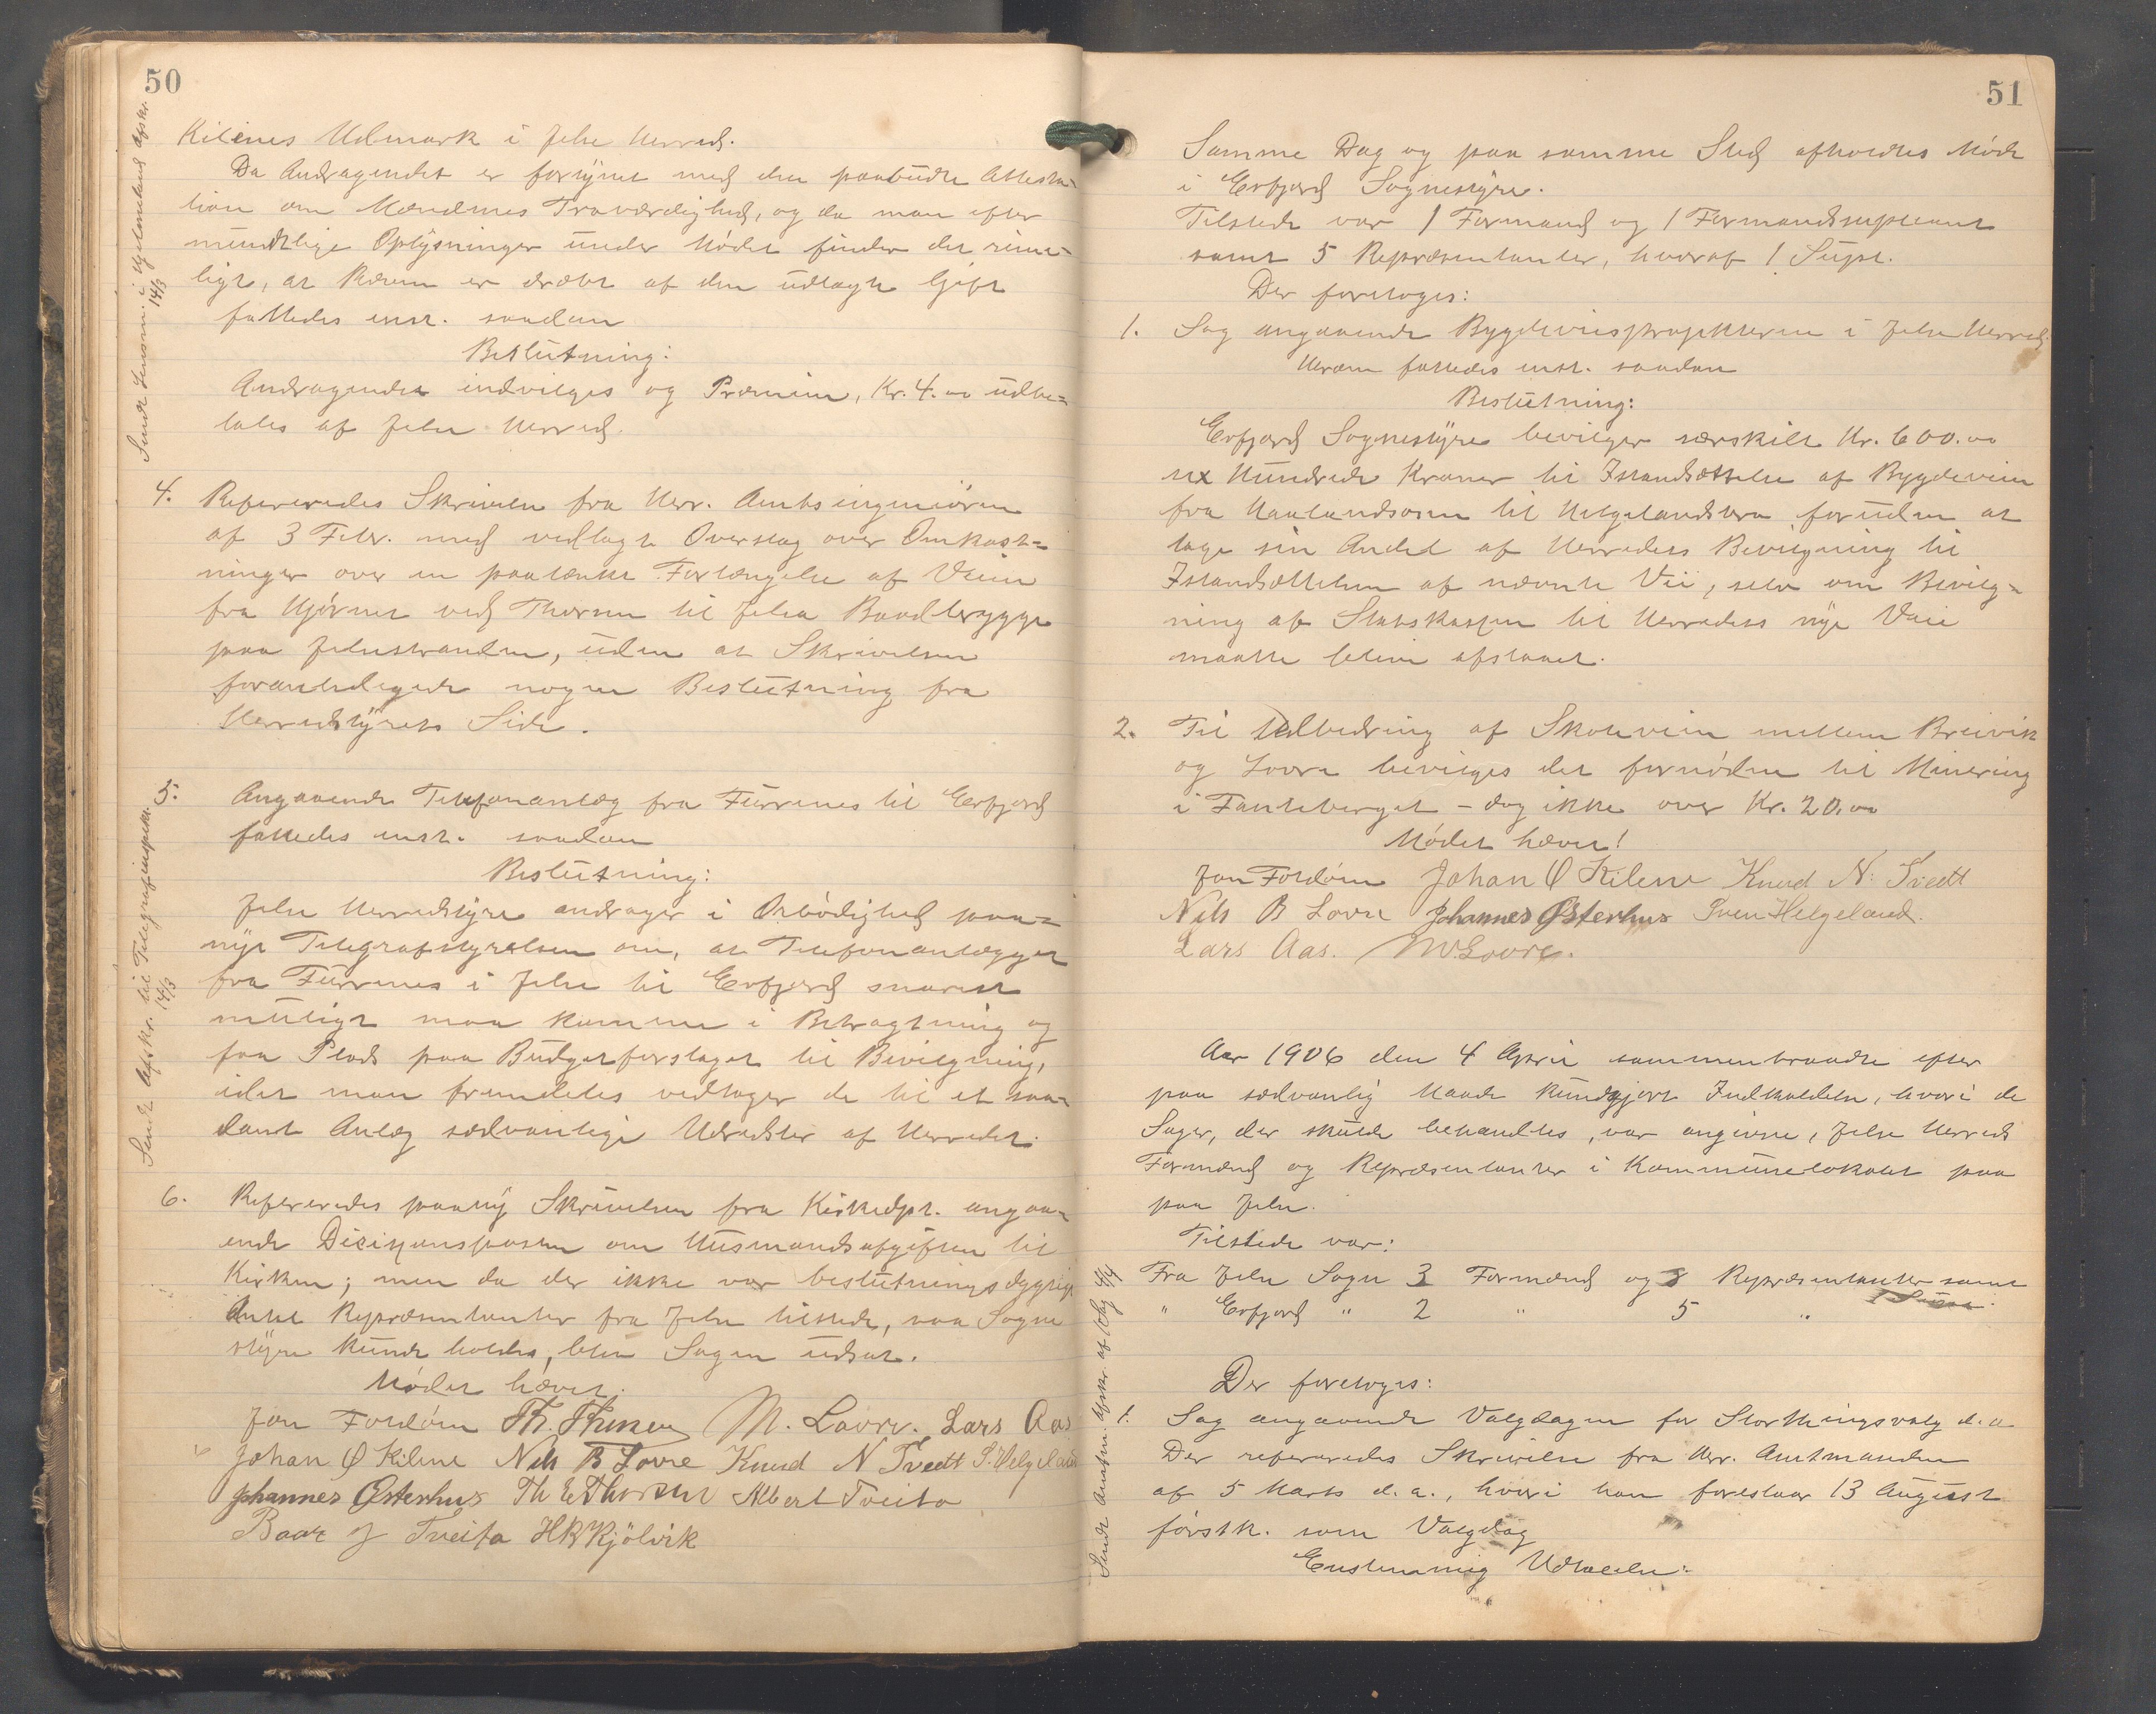 50
Kilenes Udmark i Jelse Herred.
Da Andragendet er forsynet med den paabudte Attesta-
tion om Mændenes Troværdighed, og da man efter
mundtlige Oplysninger under Mødet finder det rime-
ligt, at Ræven er dræbt af den udlagte Gift
fattedes enst. saadan
Beslutning:
Andragendet indvilges og Præmien, Kr. 4.00 udbe-
tales af Jelse Herred.
Sendt Lensm. i Hjelmeland Afskr.
14/3
4. Refereredes Skrivelse fra Herr. Amtsingeniøren
af 3 Febr. med vedlagte Overslag over Omkost-
ninger over en paatænkt Forlængelse af Veien
fra Hjørnet ved Thorsen til Jelsa Baadbrygge
paa Jelsestranden, uden at Skrivelsen
foranledigede nogen Beslutning fra
Herredstyrets Side.
5. Angaaende Telefonanlæg fra Furrenes til Erfjord
fattedes enst. saadan
Beslutning:
Jelse Herredstyre andrager i Ærbødighed paa-
nyt Telegrafstyrelsen om, at Telefonanlægget
fra Furrenes i Jelse til Erfjord snarest
muligt maa komme i Betragtning og
faa Plads paa Budgetforslaget til Bevilgning,
idet man fremdeles vedtager de til et saa-
dant Anlæg sædvanlige Udredsler af Herredet.
Sendt Afskr. til Telegrafinspekt.
14/3
6. Refereredes paany Skrivelsen fra Kirkedpt. angaa-
ende Decisionsposten om Husmandsafgiften til
Kirken; men da der ikke var beslutningsdygtigt
Antal Repræsentanter fra Jelse tilstede, saa Sogne
styre kunde holdes, blev Sagen udsat.
Mødet hævet.
Jon Foldøen Th. Thuneim M. Lovre. Lars Aas
Johan Ø Kilene Nils B Lovre Knud N Tvedt S. Helgeland
Johannes Østerhus Th E Thorsen Albert Tveita
Baar J Tveita H B Kjölvik
51
Samme Dag og paa samme Sted afholdtes Møde
i Erfjord Sognestyre.
Tilstede var 1 Formand og 1 Formandsupleant
samt 5 Repræsentanter, hvoraf 1 Supl.
Der foretoges:
1. Sag angaaende Bygdeveisprojekterne i Jelse Herred.
Herom fattedes enst. saadan
Beslutning:
Erfjord Sognestyre bevilger særskilt Kr. 600.00
sex Hundrede Kroner til Istandsættelse af Bygdeveien
fra Haalandsosen til Helgelandsbro foruden at
tage sin Andel af Herredets Bevilgning til
Istandsættelsen af nævnte Vei, selv om Bevilg-
ning af Statskassen til Herredets nye Veie
maatte blive afslaaet.
2. Til Udbedring af Skoleveien mellem Breivik
og Lovra bevilges det fornødne til Minering
i Fanteberget – dog ikke over Kr. 20.00
Mødet hævet!
Jon Foldøen Johan Ø Kilene Knud N. Tvedt
Nils B Lovre Johannes Østerhus Sven Helgeland.
Lars Aas. M. Lovre.
Aar 1906 den 4 April sammentraadte efter
paa sædvanlig Maade kundgjort Indkaldelse, hvori de
Sager, der skulde behandles, var angivne, Jelse Herreds
Formænd og Repræsentanter i Kommunelokalet paa
paa Jelse.
Tilstede var:
Fra Jelse Sogn 3 Formænd og 8 Repræsentanter samt
1 Supl.
" Erfjord " 2 " 5 "
Der foretoges:
1. Sag angaaende Valgdagen for Storthingsvalg d. a.
Der refereredes Skrivelse fra Herr. Amtmanden
af 5 Marts d. a., hvori han foreslaar 13 August
førstk. som Valgdag
Enstemmig Udtalelse:
Sendt Amtm. Afskr. af Udtg 4/4